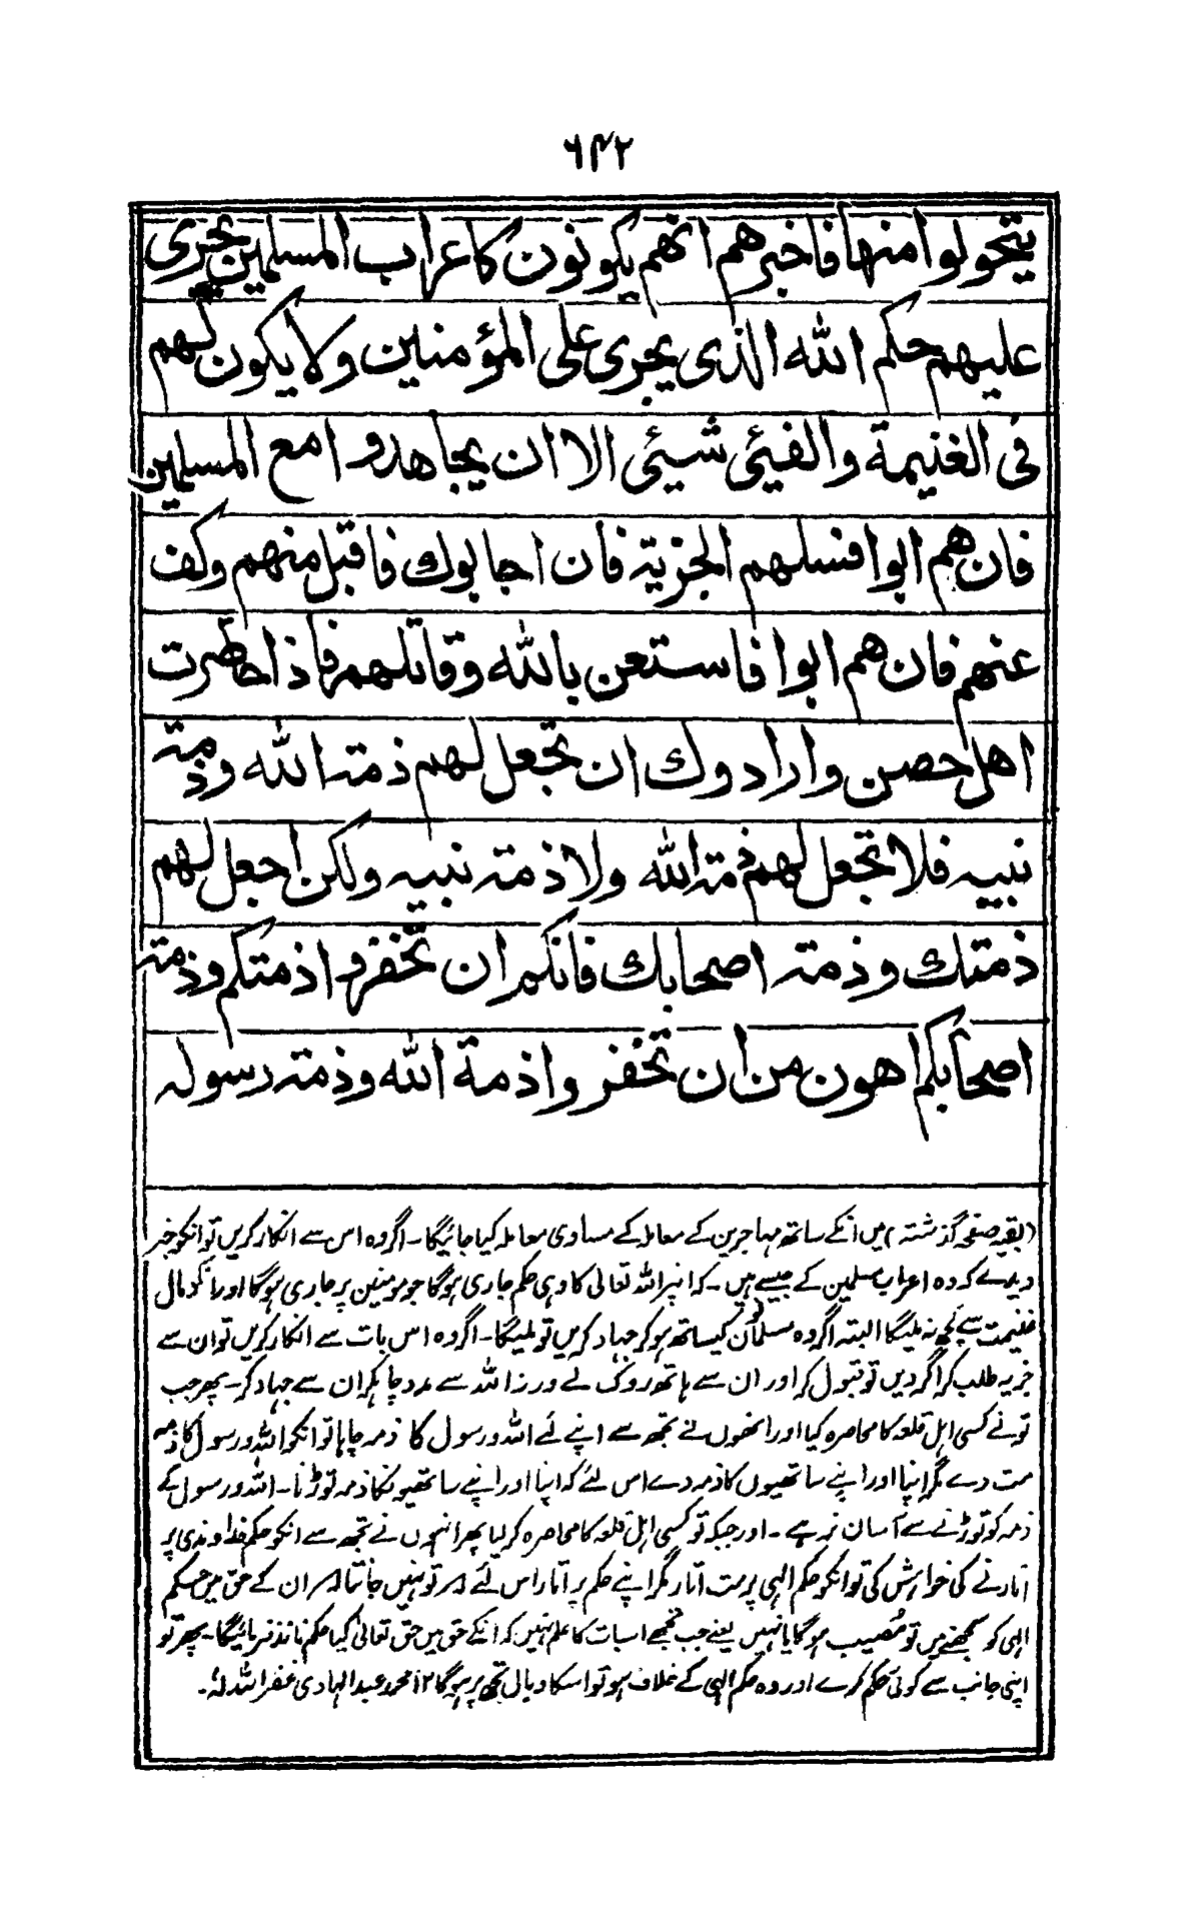 ۶۴۲
يتحولوا منها فاخبرهم انهم يكونون كاعراب المسلمين يجرى
عليهم حكم الله الذى يجرى على المؤمنين ولا يكون لهم
فى الغنيمة والفيئى شيئى الا ان يجاهدوا مع المسلمين
فان هم ابوا فسلهم الجزية فان اجابوك فاقبل منهم وكف
عنهم فان هم ابوا فاستعن بالله وقاتلهم فاذا حاضرت
اهل حصن وارادوك ان تجعل لهم ذمته الله وذمته
نبيه فلا تجعل لهم ذمته الله ولا ذمته نبيه ولكن اجعل لهم
ذمتك وذمته اصحابك فانكم ان تخفروا ذمتكم وذمته
اصحابكم اهون من ان تخفروا ذمة الله وذمته رسوله
(بقیہ صفحہ گذشتہ) میں انکے ساتھ مہاجرین کے معاملہ کے مساوی معاملہ کیا جائیگا۔ اگر وہ اس سے انکار کریں تو انکو خبر
دیدے کہ وہ اعراب مسلمین کے جیسے ہیں۔ کہ انپر اللہ تعالی کا وہی حکم جاری ہوگا جو مومنین پر جاری ہوگا اور انکو مال
غنیمت سے کچھ نہ ملیگا البتہ اگر وہ مسلمانوں کیساتھ ہوکر جہاد کریں تو ملیگا۔ اگر وہ اس بات سے انکار کریں تو ان سے
جزیہ طلب کر اگر دیں تو قبول کر اور ان سے ہاتھ روک لے ورنہ اللہ سے مدد چاہکر ان سے جہاد کر۔ پھر جب
تو نے کسی اہل قلعہ کا محاصرہ کیا اور انھوں نے تجھ سے اپنے لئے اللہ ورسول کا ذمہ چاہا تو انکو اللہ ورسول کا ذمہ
مت دے مگر اپنا اور اپنے ساتھیوں کا ذمہ دے اس لئے کہ اپنا اور اپنے ساتھیونکا ذمہ توڑنا۔ اللہ ورسول کے
ذمہ کو توڑنے سے آسان تر ہے۔ اور جبکہ تو کسی اہل قلعہ کا محاصرہ کرلیا پھر انہوں نے تجھ سے انکو حکم خداوندی پر
اتارنے کی خواہش کی تو انکو حکم الہی پر مت اتار مگر اپنے حکم پر اتار اس لئے کہ تو نہیں جانتا کہ ان کے حق میں حکم
الہی کو سمجھنے میں تو مصیب ہوگا یا نہیں یعنے جب تجھے اسبات کا علم نہیں کہ انکے حق میں حق تعالی کیا حکم نافذ فرمائیگا۔ پھر تو
اپنی جانب سے کوئی حکم کرے اور وہ حکم الہی کے خلاف ہو تو اسکا وبال تجھ پر ہوگا ۱۲ محمد عبدالہادی غفر اللہ لہ۔